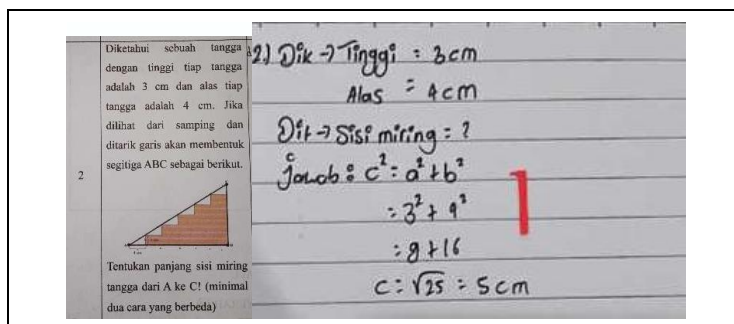 2
Diketahui sebuah tangga
dengan tinggi tiap tangga
adalah 3 cm dan alas tiap
tangga adalah 4 cm. Jika
dilihat dari samping dan
ditarik garis akan membentuk
segitiga ABC sebagai berikut.
Tentukan panjang sisi miring
tangga dari A ke C! (minimal
dua cara yang berbeda)
2.) Dik → Tinggi : 3 cm
Alas = 4 cm
Dit → Sisi miring = ?
Jawab : c² = a² + b²
= 3² + 4²
= 9 + 16
c = √25 = 5 cm
1